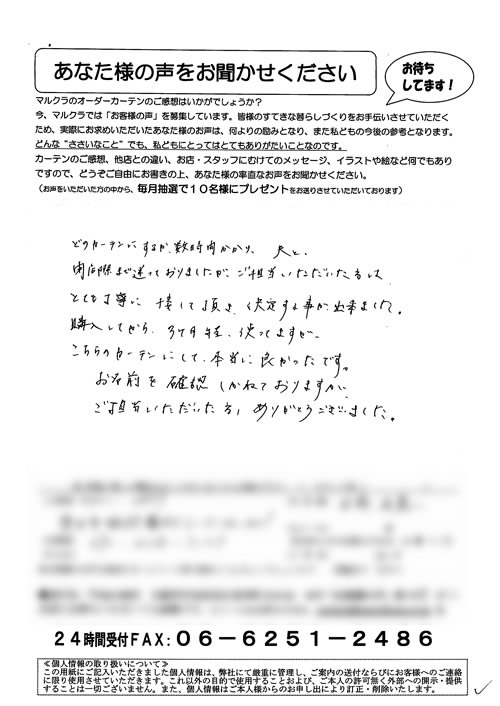 あなた様の声をお聞かせください
お待ち
してます！
マルクラのオーダーカーテンのご感想はいかがでしょうか？
今、マルクラでは「お客様の声」を募集しています。皆様のすてきな暮らしづくりをお手伝いさせていただく
ため、実際にお求めいただいたあなた様のお声は、何よりの励みとなり、また私どもの今後の参考となります。
どんな“ささいなこと”でも、私どもにとってはとてもありがたいことなのです。
カーテンのご感想、他店との違い、お店・スタッフにむけてのメッセージ、イラストや絵など何でもあり
ですので、どうぞご自由にお書きの上、あなた様の率直なお声をお聞かせください。
（お声をいただいた方の中から、毎月抽選で１０名様にプレゼントをお送りさせていただいております）
どのカーテンにするか、数時間かかり、夫と、
閉店際まで迷っておりましたが、ご担当いただいた方は
とても丁寧に 接して頂き、決定する事が出来ました。
購入してから、3ヶ月程、使ってますが、
こちらのカーテンにして、本当に良かったです。
お名前を 確認しかねておりますが、
ご担当いただいた方、ありがとうございました。
２４時間受付FAX：０６－６２５１－２４８６
≪個人情報の取り扱いについて≫
この用紙にご記入いただきました個人情報は、弊社にて厳重に管理し、ご案内の送付ならびにお客様へのご連絡
に限り使用させていただきます。これ以外の目的で使用することおよび、ご本人の許可無く外部への開示・提供
することは一切ございません。また、個人情報はご本人様からのお申し出により訂正・削除いたします。